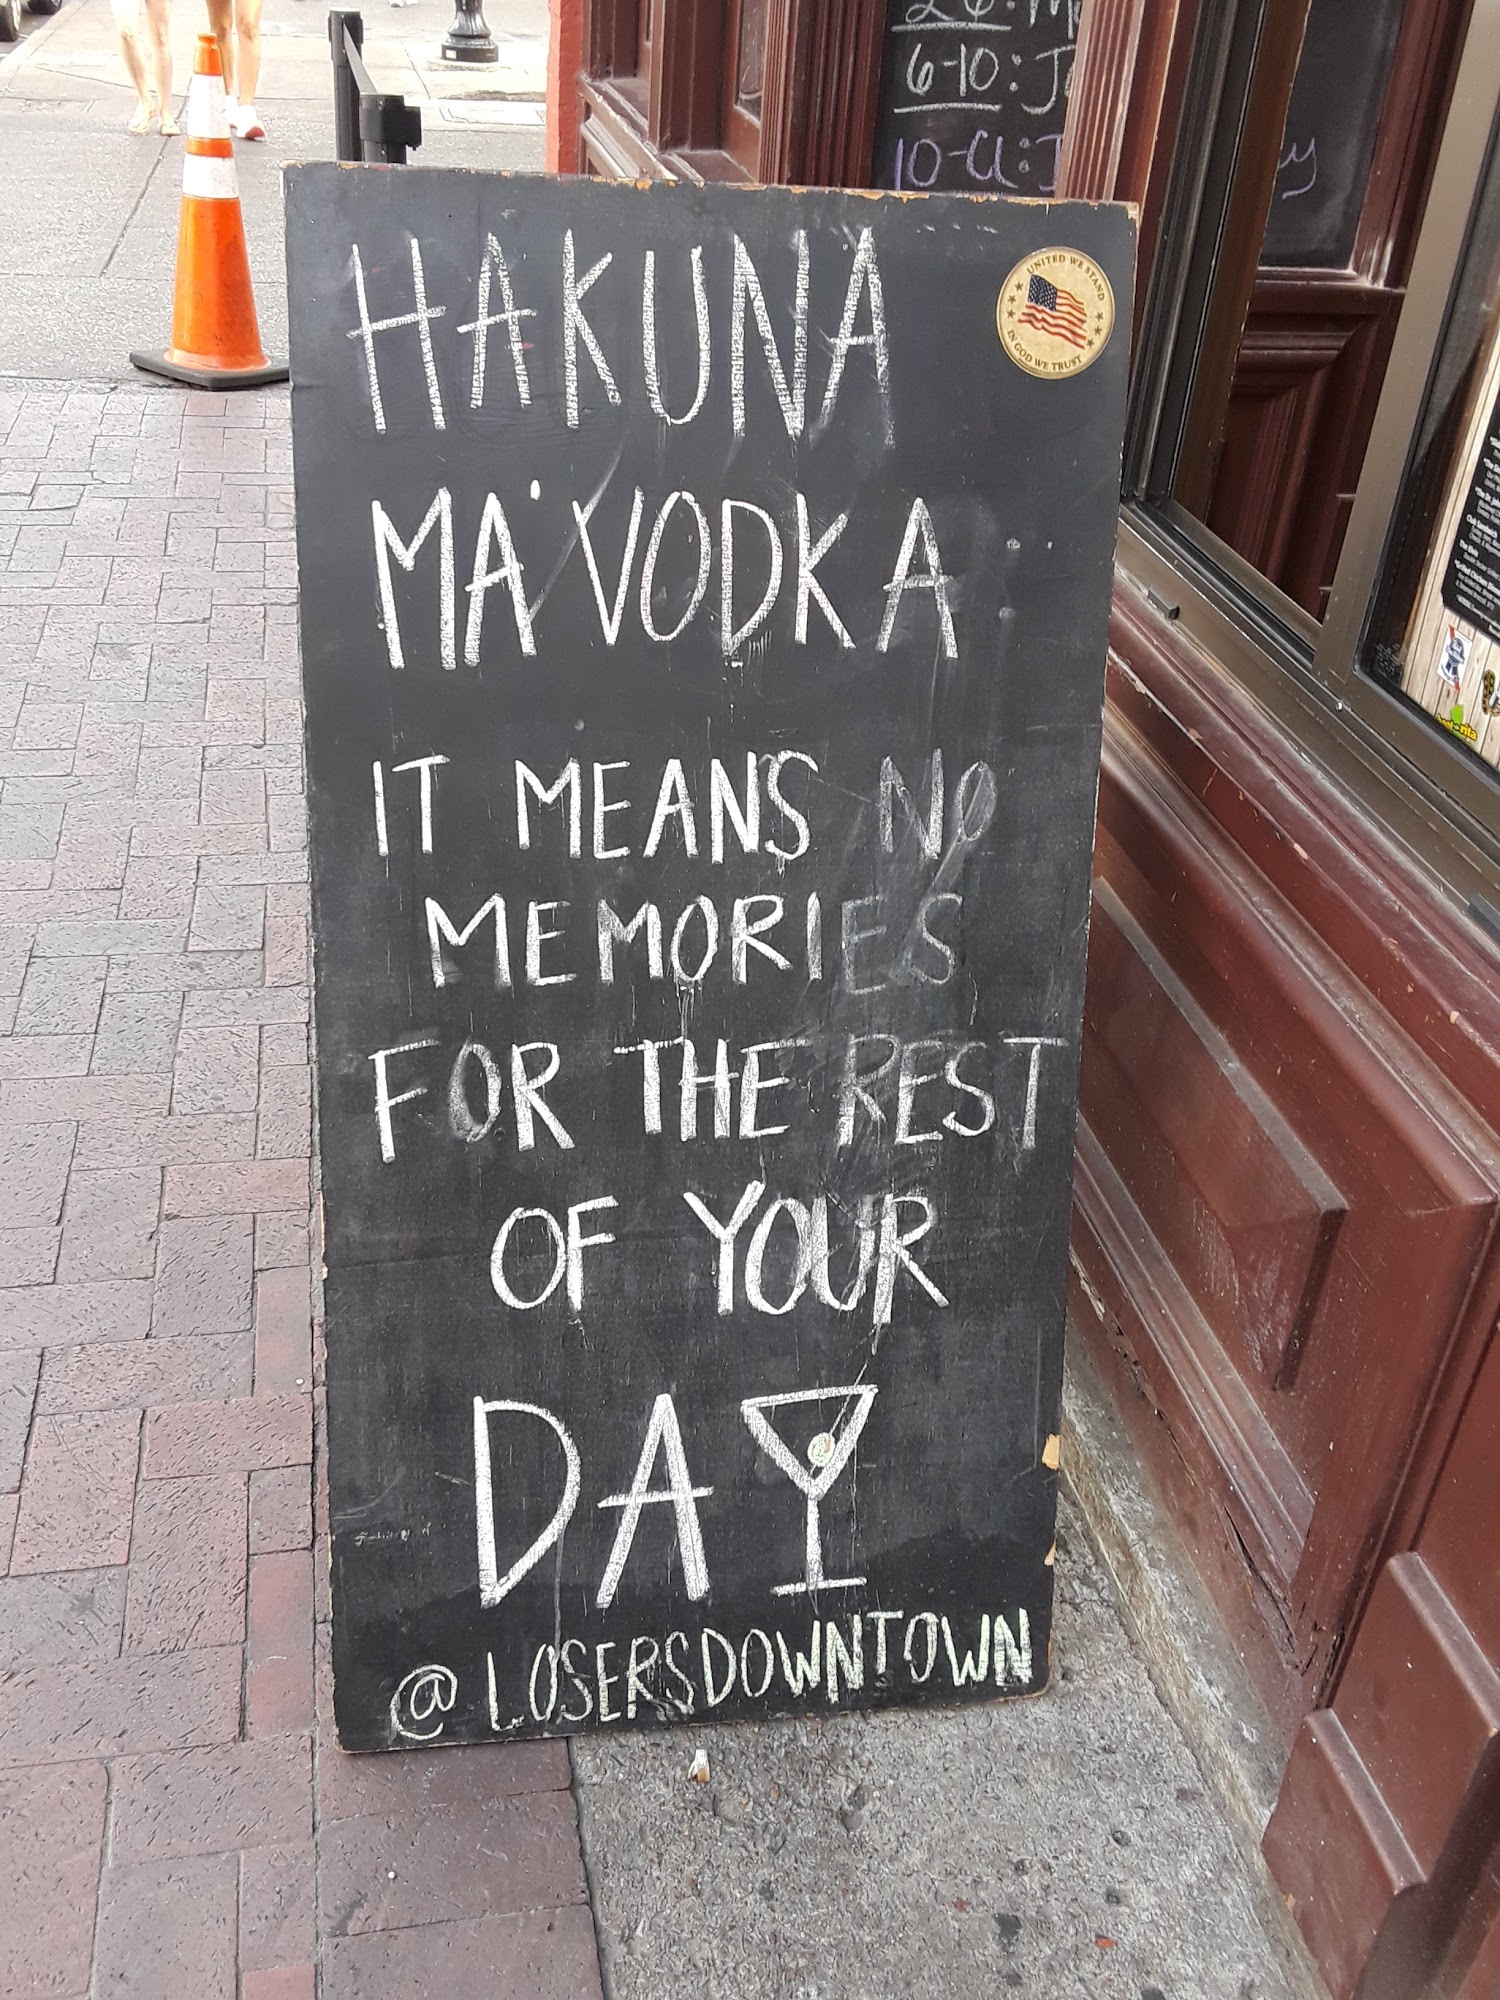 6-10: J
10-Cl:
HAKUNA
UNITED WE STAND
IN GOD WE TRUST
MA'VODKA
IT MEANS NO
MEMORIES
FOR THE REST
OF YOUR
DAY
@LOSERSDOWNTOWN